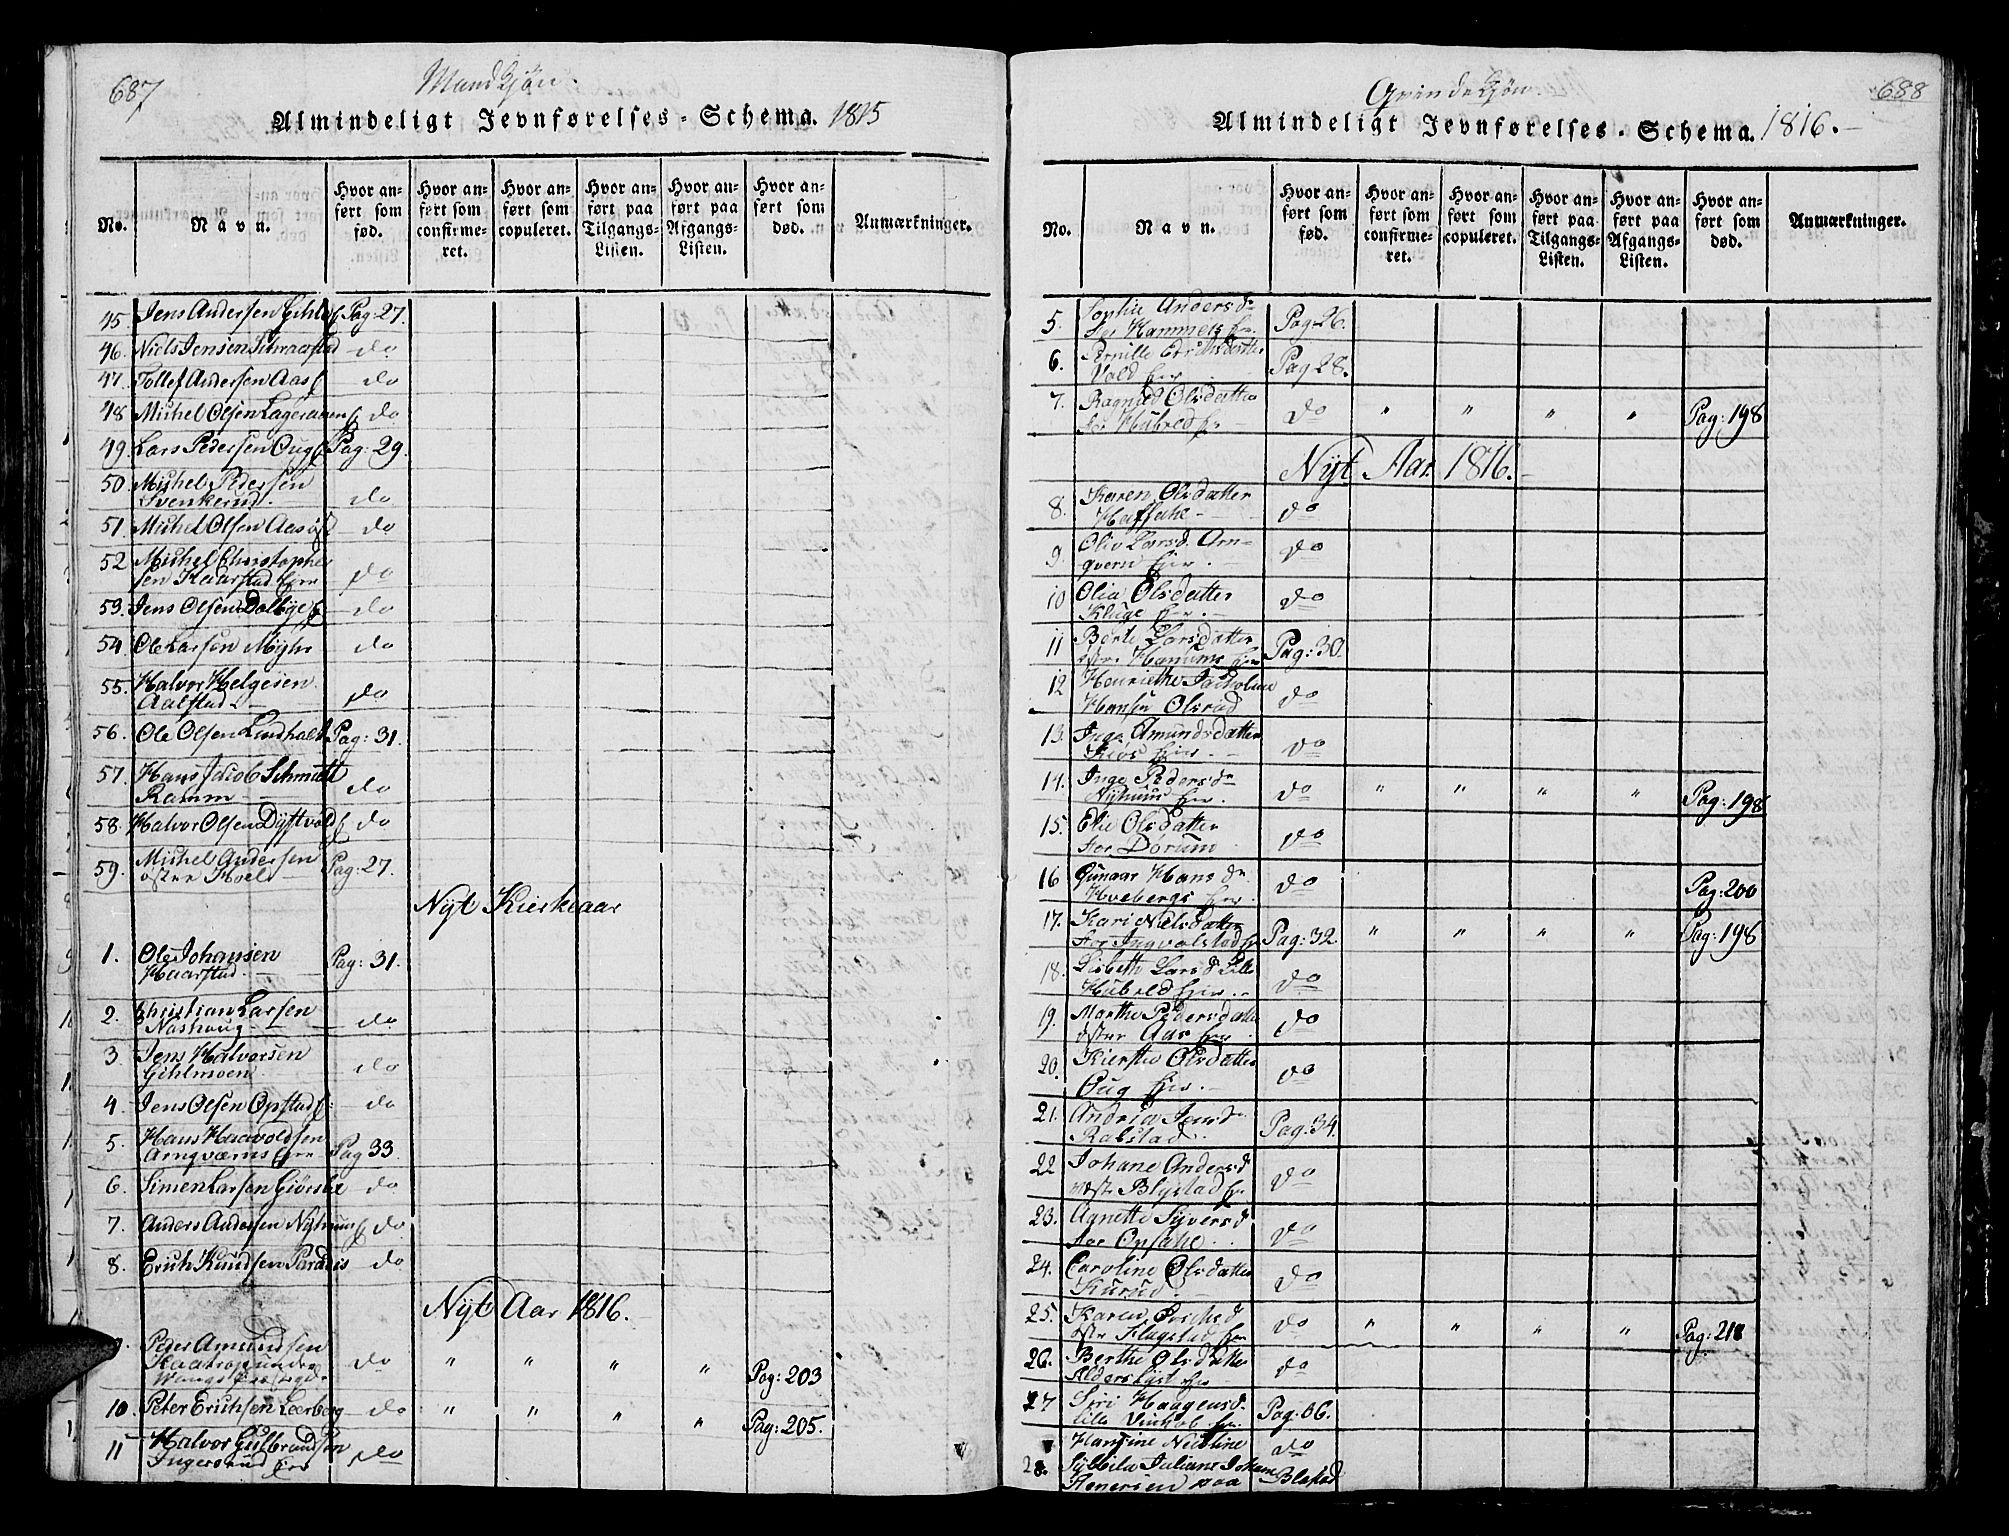 687
Mandkjøn.
Almindeligt Jevnførelses-Schema. 1815
No.
Navn.
Hvor anført som fød.
Hvor anført som confirmeret.
Hvor anført som copuleret.
Hvor anført paa Tilgangs-Listen.
Hvor anført paa Afgangs-Listen.
Hvor anført som død.
Anmærkninger.
45. Jens Andersen Gihle Pag: 27.
46. Niels Jensen do
47. Tollef Andersen Aas do
48 Michel Olsen Lageraaen do
49 Lars Pedersen Oug Pag: 29.
50 Michel Pedersen
Svenkerud. do
51. Michel Olsen Aas do
52 Michel Christopher
sen Kaarstad do
53. Jens Olsen Dalbye do
54. Ole Larsen Myhr do
55. Halvor Helgesen
Aalstad do
56. Ole Olsen Lindhalt Pag: 31.
57. Hans Jacob Schmidt
Ramm do
58. Halvor Olsen Dystvold do
59. Michel Andersen
østre Hoel Pag: 27.
Nyt Kierkeaar
1. Ole Johansen
Haarstad. Pag: 31.
2. Christian Larsen
Nashoug do
3 Jens Halvorsen
Gihlmoen do
4. Jens Olsen Opstad do
5. Hans Haavoldsen
Arnqværns Pag 33
6. Simen Larsen do
7. Anders Andersen Nyhuus do
8. Erich Knudsen Paradiis do
Nyt Aar 1816.
9. Peder Amundsen
do " " " " Pag: 203
10. Peter Erichsen Leerberg do " " " " Pag: 205.
11 Halvor Gulbrandsen
Ingersrud do
688
Qvindekjøn.
Almindeligt Jevnførelses-Schema. 1816.
No.
Navn.
Hvor anført som fød.
Hvor anført som confirmeret.
Hvor anført som copuleret.
Hvor anført paa Tilgangs-Listen.
Hvor anført paa Afgangs-Listen.
Hvor anført som død.
Anmærkninger.
5. Sophie Andersdr
Hammers Pag 26.
6. Pernille
Vold Pag 28.
7. Ragnild Olsdatter
Hubred do " " " " Pag: 198
Nyt Aar 1816.
8. Karen Olsdatter
do
9. Olia Larsd. Arn=
qvern do
10 Olia Olsdatter
Kluge do
11 Berte Larsdatter
Pag: 30.
12 Henriethe
Hansen Olsrud do
13. Inge Amundsdatter
do
14. Inge Pedersdr
Nyhuus do " " " " Pag: 198
15. Elie Olsdatter
Dørum do
16 Gunaar Hansdr
Hvebergs do Pag: 200
17. Kari Nielsdatter
Stor Ingvalstad Pag: 32 " " " " Pag: 198
18. Lisbeth Larsd Lille
Hubred do
19. Marthe Pedersdatter
østre Aas do
20. Kiersti Olsdatter
Oug do
21. Andria Jensdr
Rabstad. Pag: 34.
22 Johane Andersd
Blystad do
23. Agnette Syversd
Stor Opsahl do
24. Caroline Olsdatter
do
25. Karen
Flagstad do " " " " Pag: 218
26. Berthe Olsdatter
Alderslyst do
27 Siri Haagensd.
Lille Pag: 36.
28. Hansine Nicoline
Juliane Johane do
paa Blakstad